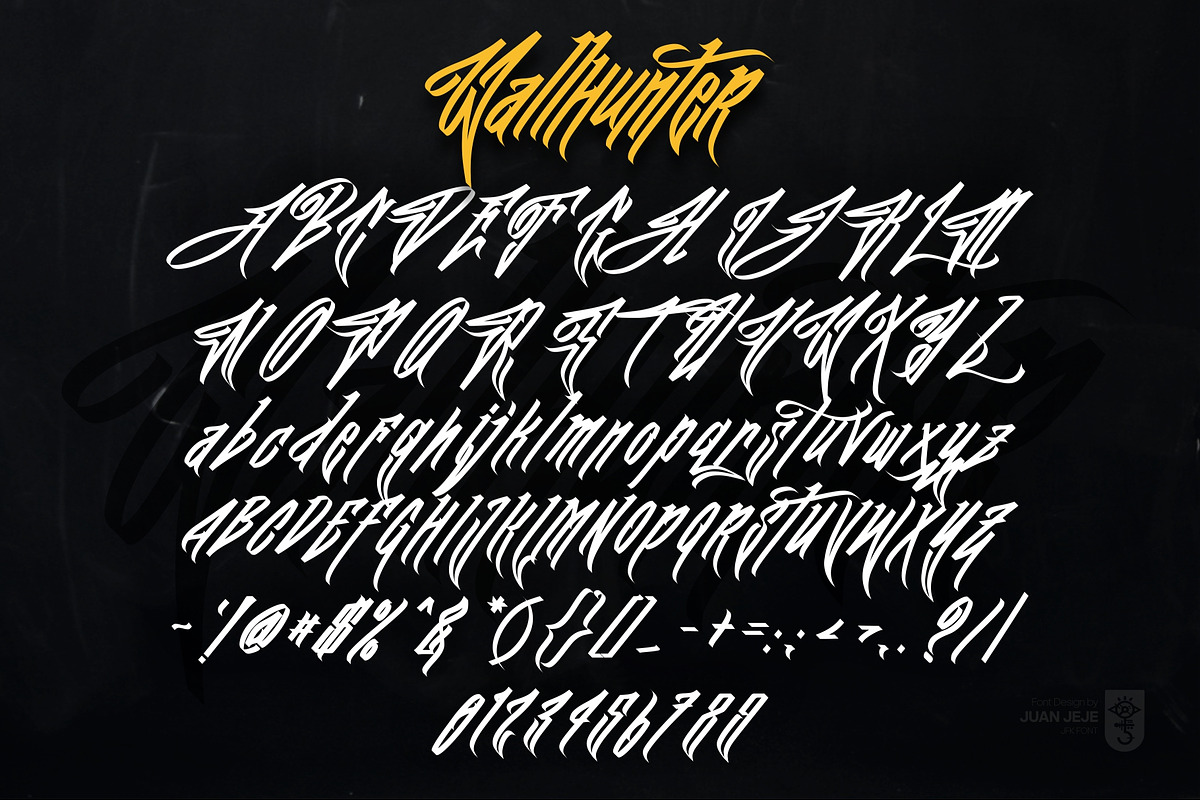 WallHunter
A B C D E F G H I J K L M
N O P Q R S T U V W X Y Z
a b c d e f g h i j k l m n o p q r s t u v w x y z
A B C D E F G H I J K l M N O P Q R S T U V W X Y Z
~ ! @ # $ % ^ & * ( ) { } [ ] _ - + = : ; < > , . ? / \
0 1 2 3 4 5 6 7 8 9
Font Design by
JUAN JEJE